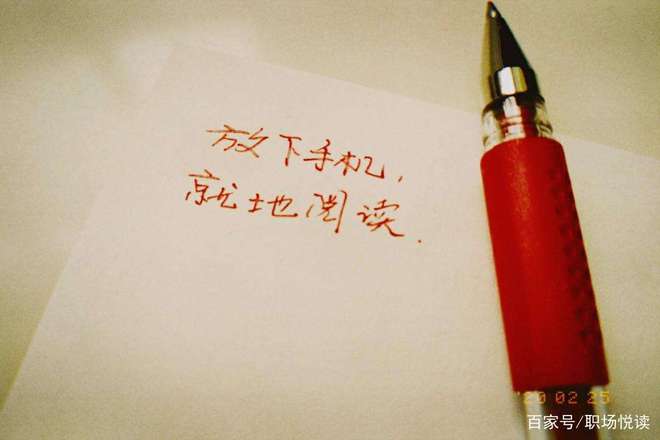 放下手机,
就地阅读.
'20 02 25
百家号/职场悦读